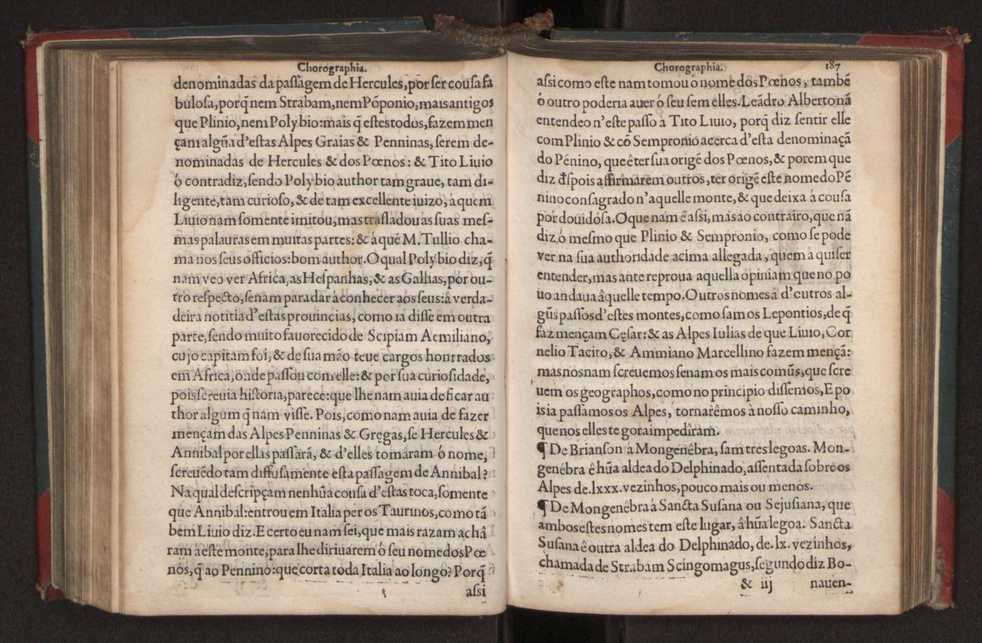 Chorographia.
denominadas da passagem de Hercules, por ser cousa fa
bulosa, porq̃ nem Strabam, nem Põponio, mais antigos
que Plinio, nem Polybio: mais q̃ estes todos, fazem men
çam algũa d'estas Alpes Graias & Penninas, serem de-
nominadas de Hercules & dos Pœnos: & Tito Liuio
ó contradiz, sendo Polybio author tam graue, tam di-
ligente, tam curioso, & de tam excellente iuizo, à quem
Liuio nam somente imitou, mas trasladou as suas mes-
mas palauras em muitas partes: & à quẽ M. Tullio cha-
ma nos seus officios: bom author. O qual Polybio diz, q̃
nam veo ver Africa, as Hespanhas, & as Gallias, por ou-
tro respecto, senam para dar à conhecer aos seus: â verda-
deira notitia d'estas prouincias, como ia disse em outra
parte, sendo muito fauorecido de Scipiam Aemiliano,
cujo capitam foi, & de sua mão teue cargos honrrados
em Africa, onde passou com elle: & por sua curiosidade,
pois screuia historia, parece: que lhe nam auia de ficar au
thor algum q̃ nam visse. Pois, como nam auia de fazer
mençam das Alpes Penninas & Gregas, se Hercules &
Annibal por ellas passarã, & d'elles tomaram ó nome,
screuẽdo tam diffusamente esta passagem de Annibal?
Na qual descripçam nenhũa cousa d'estas toca, somente
que Annibal: entrou em Italia per os Taurinos, como tã
bem Liuio diz. E certo eu nam sei, que mais razam achâ
ram a este monte, para lhe diriuarem ó seu nome dos Pœ
nos, q̃ ao Pennino: que corta toda Italia ao longo? Porq̃
assi
Chorographia. 187
assi como este nam tomou o nome dos Pœnos, tambẽ
ó outro poderia auer ó seu sem elles. Leãdro Alberto nã
entendeo n'este passo à Tito Liuio, porq̃ diz sentir elle
com Plinio & cõ Sempronio acerca d'esta denominaçã
do Pẽnino, que ê ter sua origẽ dos Pœnos, & porem que
diz d̃spois affirmarem outros, ter origẽ este nome do Pẽ
nino consagrado n'aquelle monte, & que deixa à cousa
por douidosa. O que nam ê assi, mas ao contrairo, que nã
diz o mesmo que Plinio & Sempronio, como se pode
ver na sua authoridade acima allegada, quem â quiser
entender, mas ante reproua aquella opiniam que no po
uo andaua âquelle tempo. Outros nomes â d'outros al-
gũs passos d'estes montes, como sam os Lepontios, de q̃
faz mençam Cęsar: & as Alpes Iulias de que Liuio, Cor
nelio Tacito, & Ammiano Marcellino fazem mençã:
mas nos nam screuemos senam os mais comũs, que scre
uem os geographos, como no principio dissemos, E po
is ia passamos os Alpes, tornarêmos â nosso caminho,
que nos elles tegora impediram.
¶ De Brianson à Mongenêbra, sam tres legoas. Mon-
genêbra ê hũa aldea do Delphinado, assentada sobre os
Alpes de. lxxx. vezinhos, pouco mais ou menos.
¶ De Mongenêbra à Sancta Susana ou Sejusiana, que
ambos estes nomes tem este lugar, â hũa legoa. Sancta
Susana ê outra aldea do Delphinado, de. lx. vezinhos,
chamada de Strabam Scingomagus, segundo diz Bo-
& iij nauen-